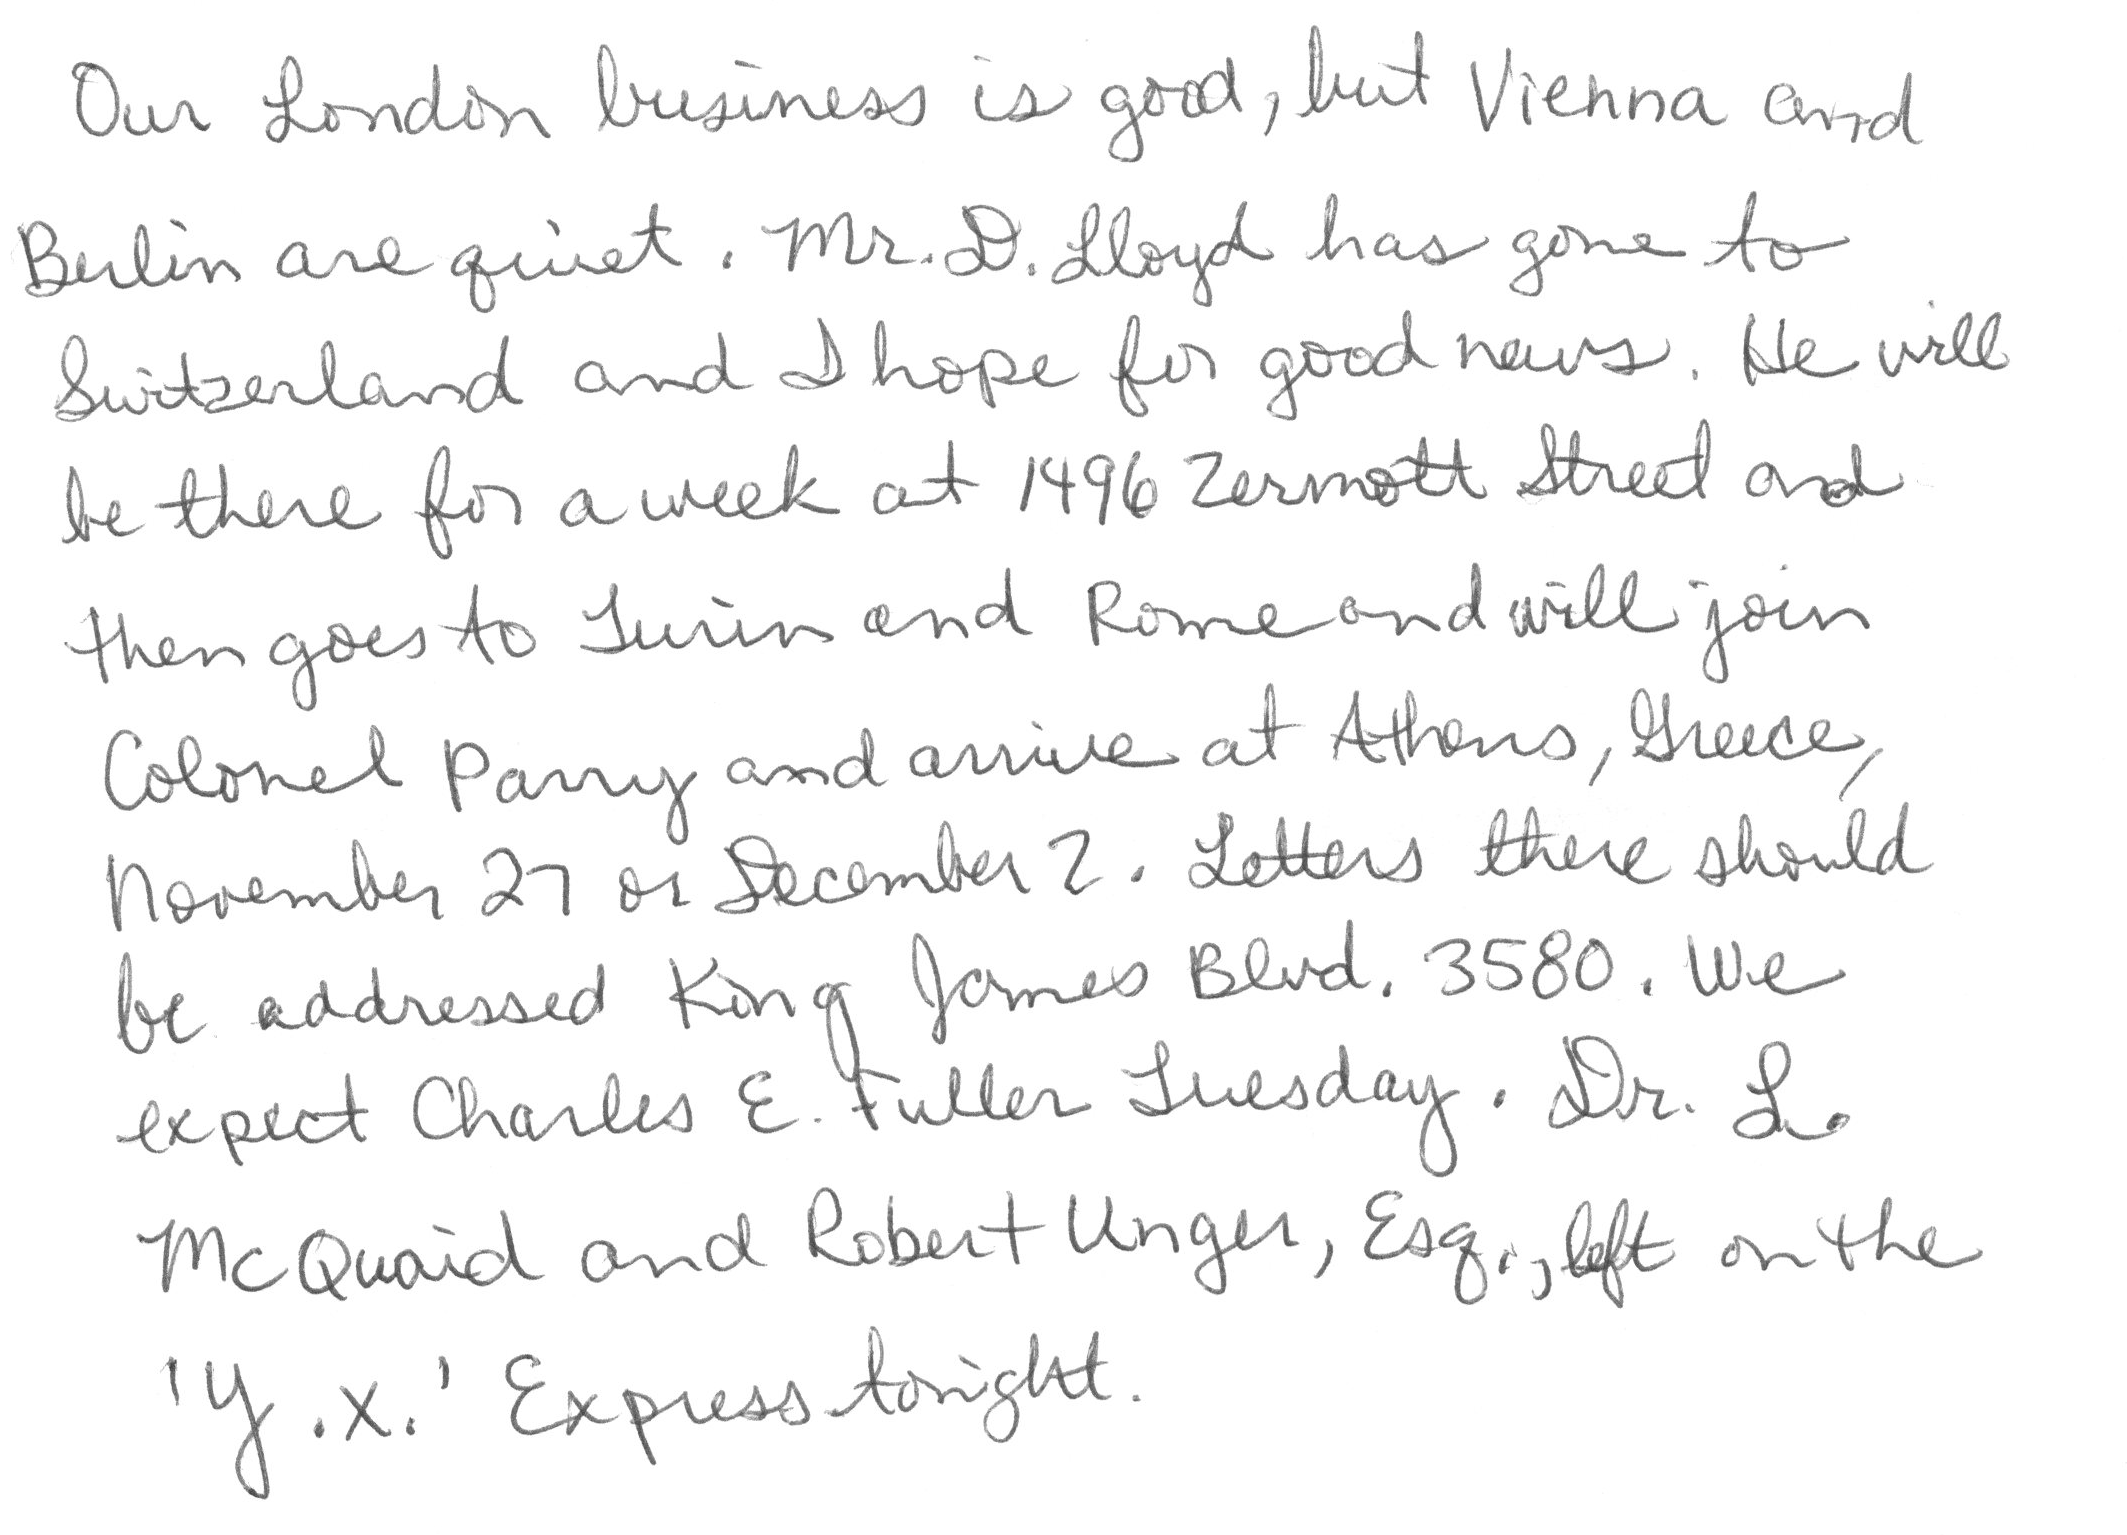 Our London business is good, but Vienna and
Berlin are quiet. Mr. D. Lloyd has gone to
Switzerland and I hope for good news. He will
be there for a week at 1496 Zermott Street and
then goes to Turin and Rome and will join
Colonel Parry and arrive at Athens, Greece,
November 27 or December 2. Letters there should
be addressed King James Blvd. 3580. We
expect Charles E. Fuller Tuesday. Dr. L.
McQuaid and Robert Unger, Esq., left on the
'Y.X.' Express tonight.